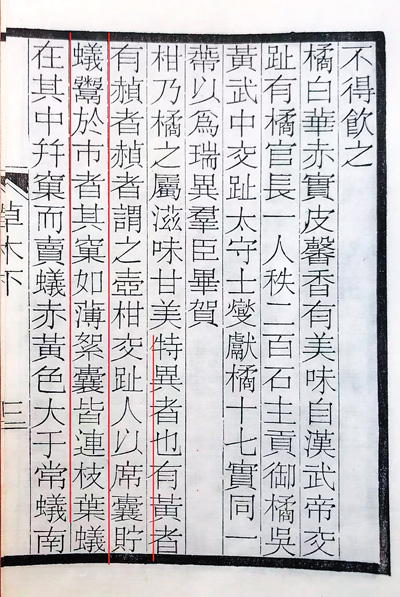 不得飲之
橘白華赤實皮馨香有美味自漢武帝交
趾有橘官長一人秩二百石主貢御橘吳
黃武中交趾太守士燮獻橘十七實同一
蔕以為瑞異羣臣畢賀
柑乃橘之屬滋味甘美特異者也有黃者
有赬者赬者謂之壺柑交趾人以席囊貯
蟻鬻於市者其窠如薄絮囊皆連枝葉蟻
在其中幷窠而賣蟻赤黃色大于常蟻南
草木下